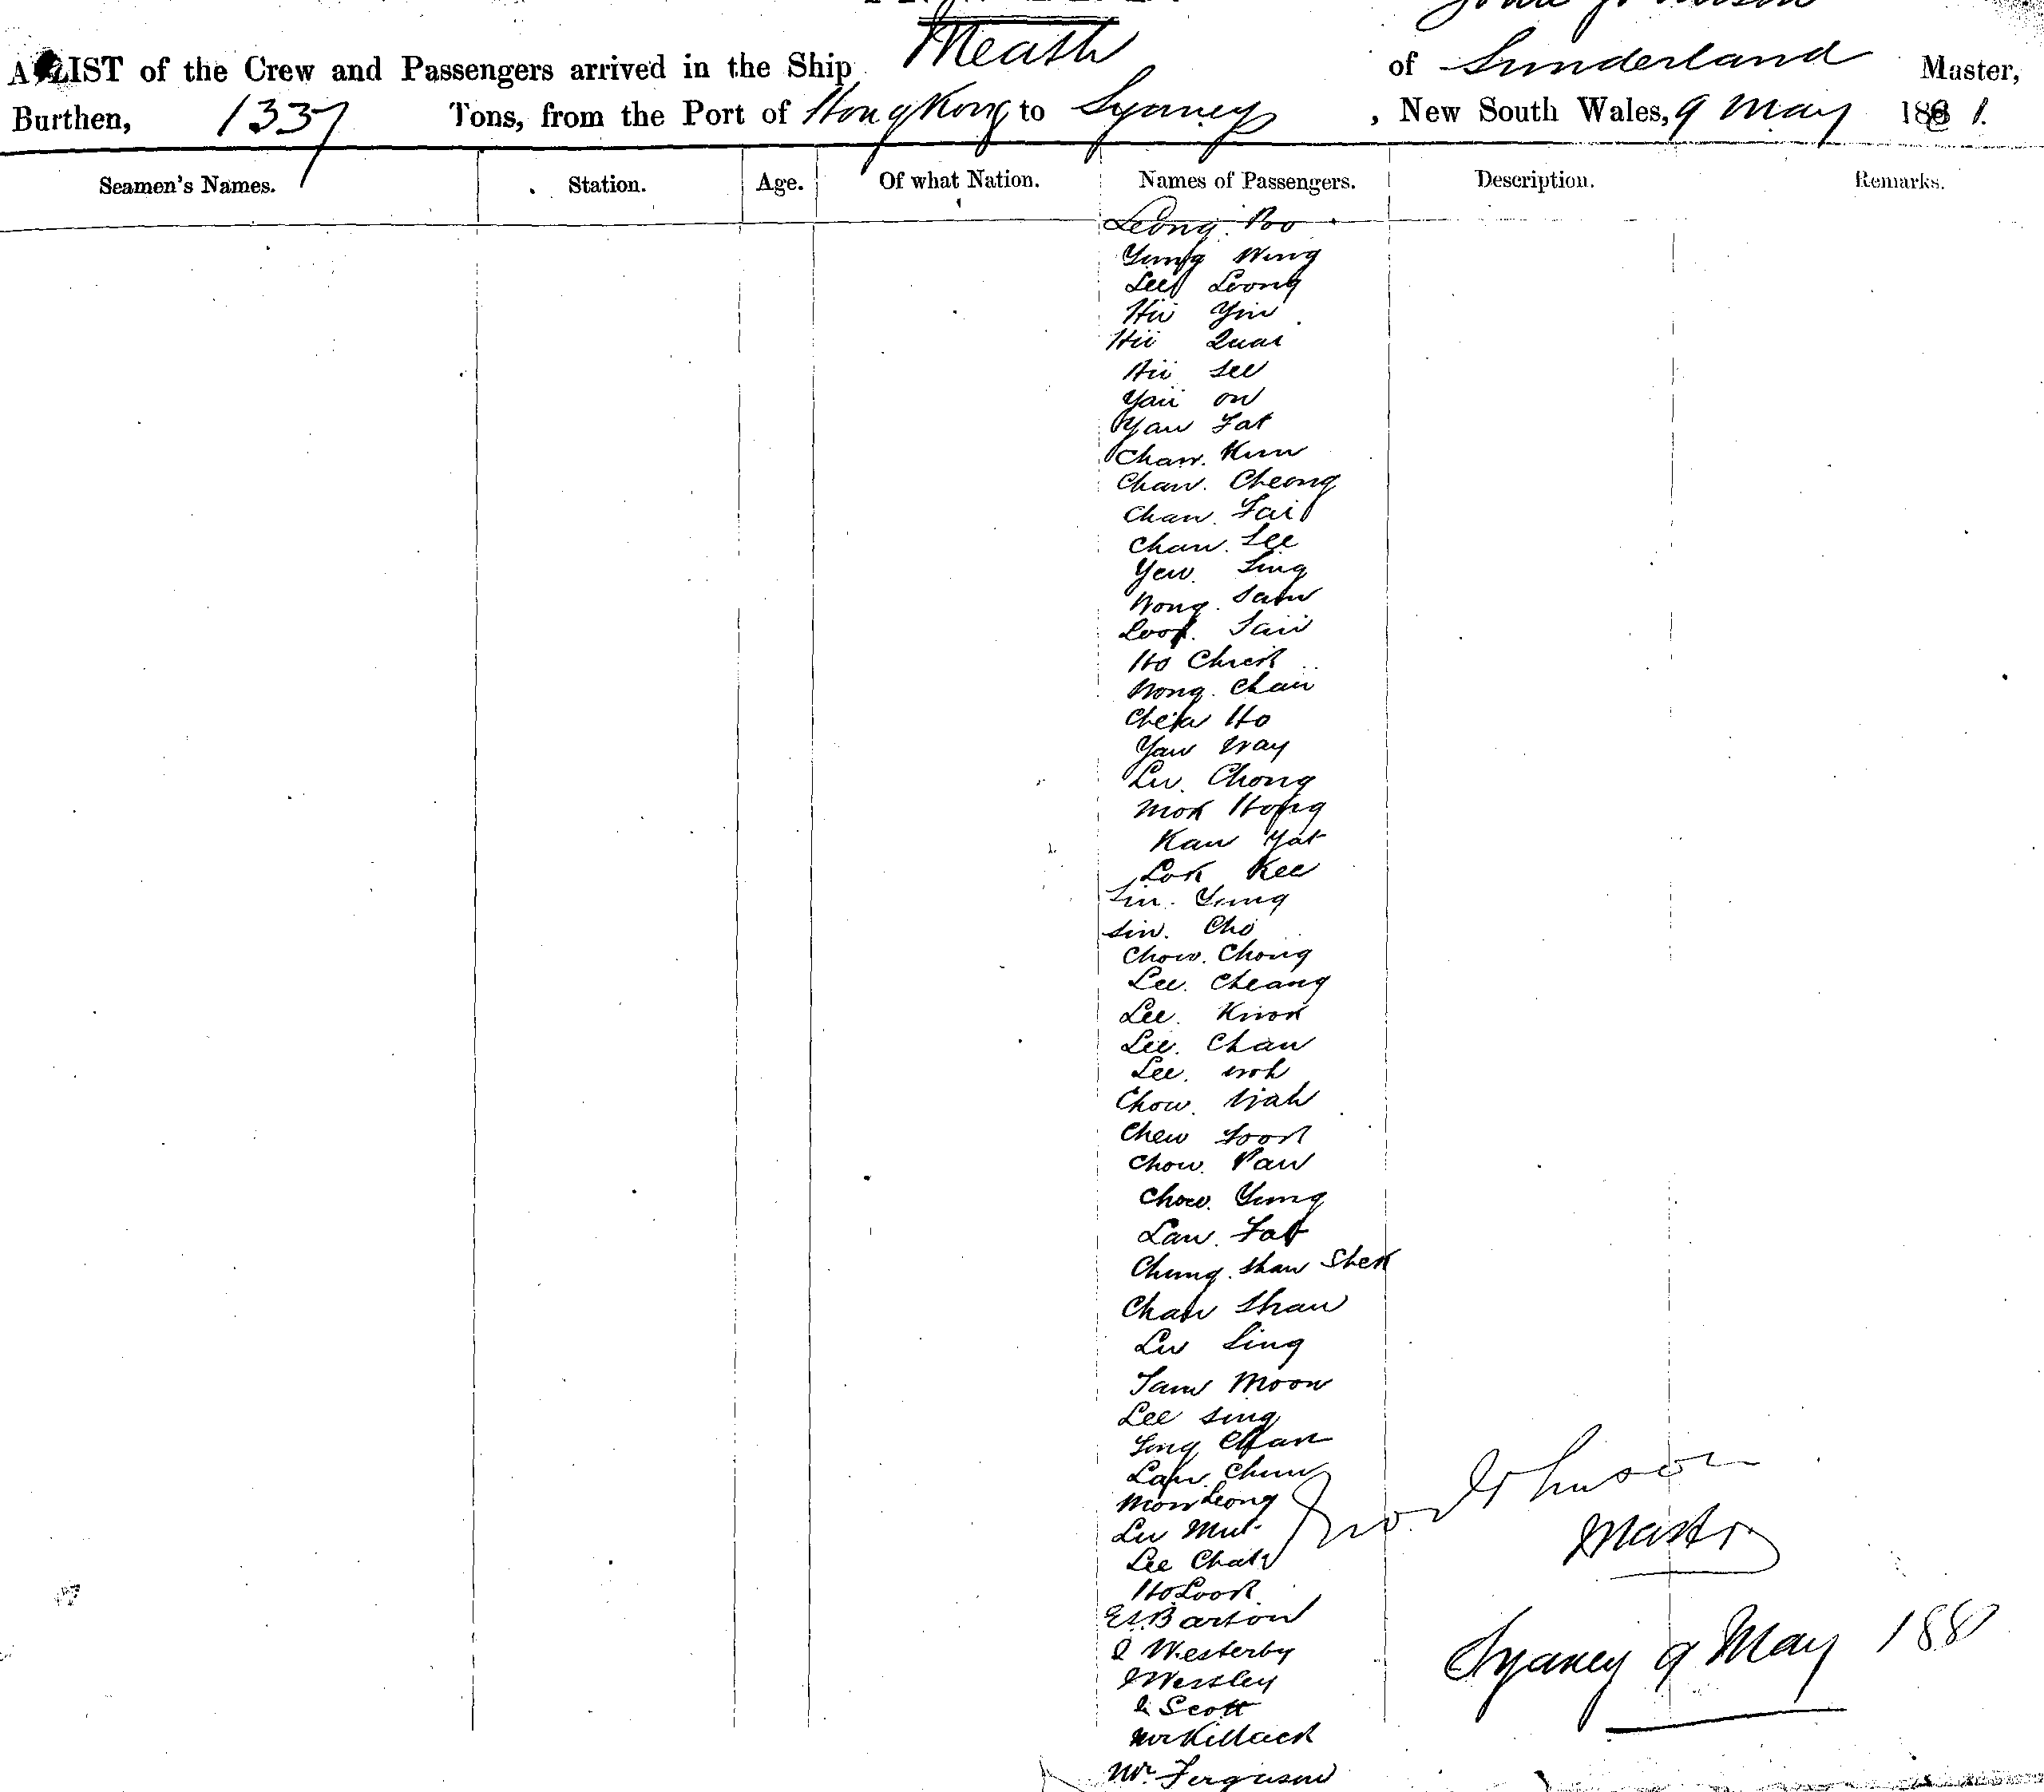 A LIST of the Crew and Passengers arrived in the Ship Meath of Sunderland Master,
Burthen, 1337 Tons, from the Port of Hong Kong to Sydney, New South Wales, 9 May 1881.
Seamen's Names. Station. Age. Of what Nation. Names of Passengers. Description. Remarks.
Leong Poo
Yung Wing
Lee Loong
Hii Yin
Hii Quai
Hii See
Yau on
Yaw Fat
Chan. Kum
Chan. Cheong
Chan. Fai
Chan. Lee
Yew. Sing
Wong. Sam
Look. Tai
Ho Chick
Wong. Chan
Ho
Yaw Way
Lu. Chong
Mok Hong
Kaw Yat
Lok Kee
Sin. Yung
Sin. Cho
Chow. Chong
Lee. Cheang
Lee. Kwok
Lee. Chan
Lee. Woh
Chow. Wah
Chew Fook
Chow. Paw
Chow. Yung
Law. Fat
Chung. Shaw Shek
Chan Shaw
Lu Sing
Tam Moon
Lee Sing
Chan
Law. Chun
Mow Leong
Lu Mut
Lee Chat
Ho Look
E S Barton
Westerby
Wessley
Scott
McKillack
Mr. Ferguson
Jno Johnson
Master
Sydney 9 May 188